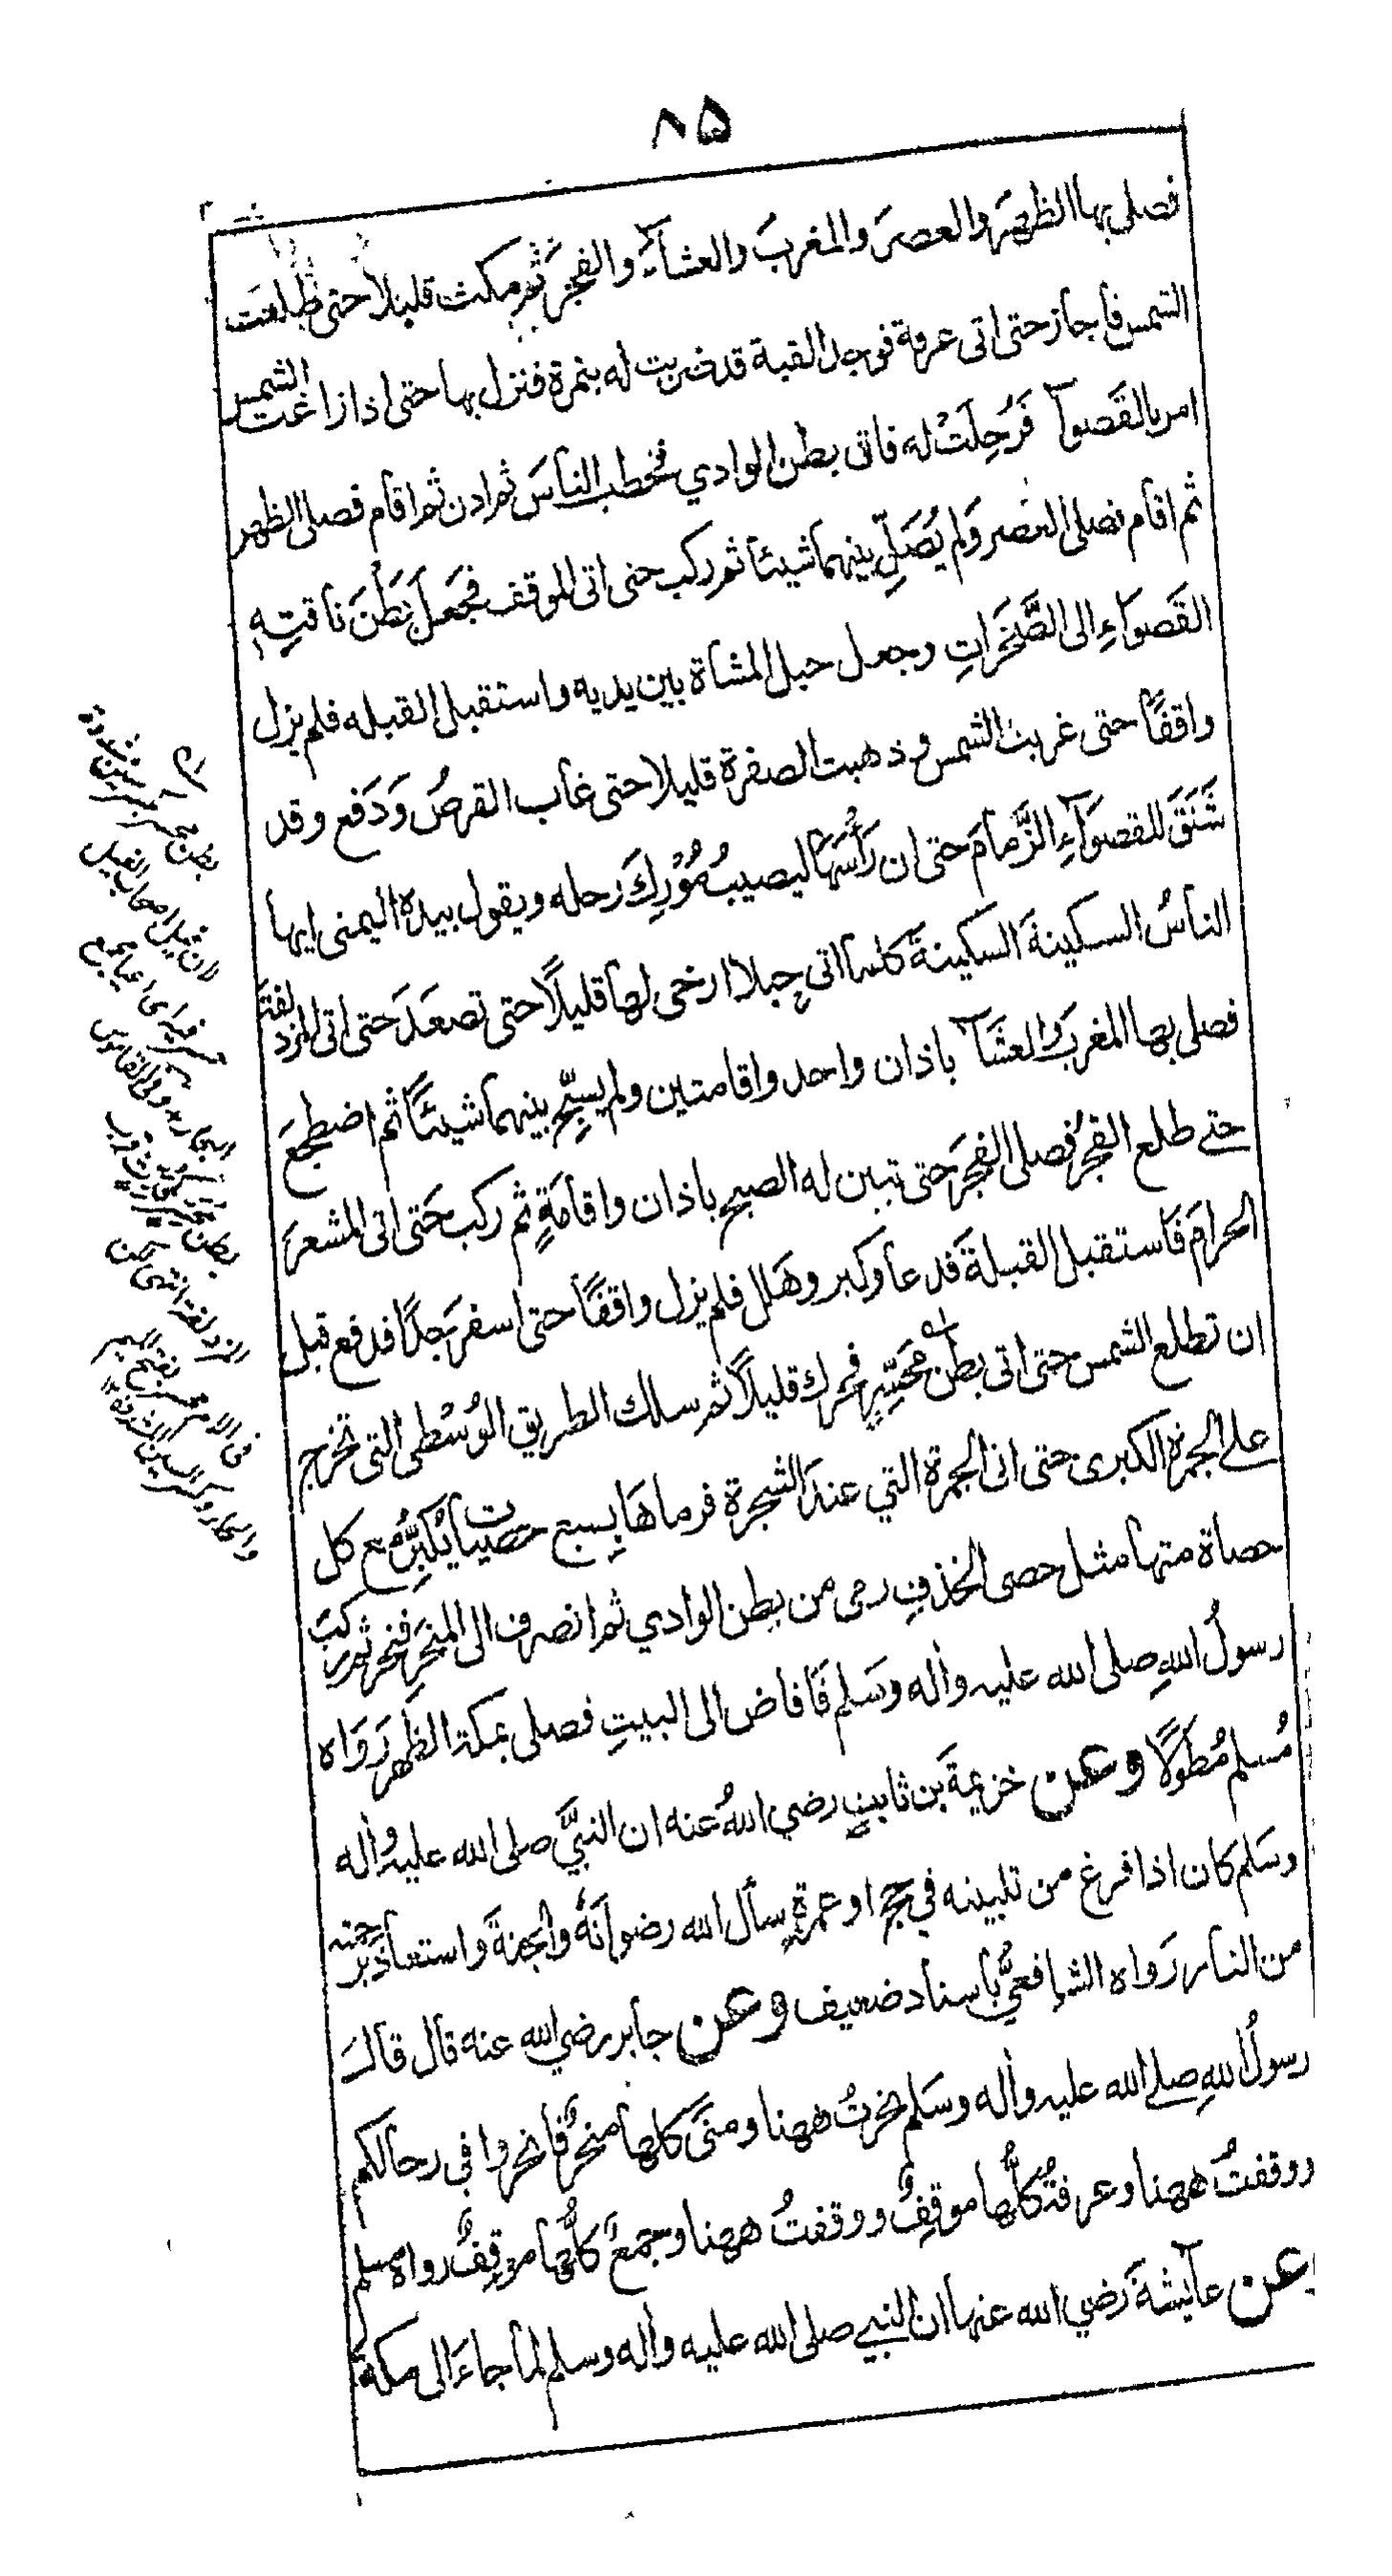 ٨٥
فصلى بها الظهرَ والعصرَ والمغربَ والعشاءَ والفجرَ ثم مكث قليلا حتى طلعت
الشمس فأجاز حتى اتى عرفة فوجد القبة قد ضربت له بنمرة فنزل بها حتى اذا زاغت الشمس
امر بالقَصوآ فَرُحِلَتْ له فاتى بطن الوادي فخطب الناسَ ثم اذن ثم اقام فصلى الظهر
ثم اقام فصلى العصر وَلم يُصَلِّ بينهما شيئا ثم ركب حتى اتى الموقف فجَعلَ بَطْنَ ناقتِهِ
القَصوَاءِ الى الصَّخَرَاتِ وجعل حبل المشاة بين يديه واستقبل القبله فلم يزل
واقفًا حتى غربت الشمس وذهبت الصفرة قليلا حتى غاب القرصُ وَدَفع وقد
شَنَقَ للقصوَآءِ الزَّمامَ حتى ان رَأْسَهَا ليصيبُ مُوْرِكَ رحله ويقول بيده اليمنى ايها
الناسُ السكينةَ السكينةَ كلما اتى حبلا ارخى لها قليلًا حتى تصعَدَ حتى اتى المزدلفةَ
فصلى بها المغربَ والعشَآ باذان واحد واقامتين ولم يسبِّح بينهما شيئًا ثم اضطجعَ
حتے طلع الفجرُ فصلى الفجرَ حتى تبين له الصبح باذان واقامَةٍ ثم ركب حَتى اتى المشعرَ
الحرامَ فَاستقبل القبلةَ فَدعا وكبر وهَلل فلم يزل واقفًا حتى اسفر جدًا فدفع قبل
ان تطلع الشمس حتى اتى بطن محَسِّرٍ فحرك قليلًا ثم سلك الطريق الوُسْطى التى تخرج
علے الجمرة الكبرى حتى اتى الجمرة التي عندَ الشجرة فرماهَا بِسبع حصيات يُكبِّرُ مع كل
حصاة منها مثل حصى الخذفِ رمى من بطن الوادي ثم انصرف الى المنحَرِ فنحر ثم ركبَ
رسولُ اللهِ صلى الله عليه واٰله وسَلم فَافاض الى البيتِ فصلى بمكة الظهر رَوَاه
مُسلم مُطَوَّلًا وعن خزيمةَ بن ثابتٍ رضي اللهُ عنه ان النبيَّ صلى الله عليه واٰله
وسَلم كان اذا فرغ من تلبيته في حجٍ او عمرةٍ سأل الله رضوانَهُ والجنةَ واستعاذ برَحمته
من النار رَواه الشافعيُّ باسناد ضعيف وعن جابر رضي الله عنه قال قالَ
رسولُ اللهِ صلے الله عليه واٰله وسَلم نحرتُ ههنا ومنًى كلها منحرٌ فانحروا في رحالكم
ووقفتُ ههنا وعرفةُ كلُّها موقِفٌ ووقفتُ ههنا وجَمعٌ كلُّها موقِفٌ رواه مسلم
وعن عآيشةَ رَضي الله عنها ان النبيے صلى الله عليه واٰله وسلم لما جاءَ الى مكة
بطن محسر
لان فيل اصحاب الفيل
حسر فيه اى اعيا
وفى القاموس
بطن محسر قرب
المزدلفة انتهى